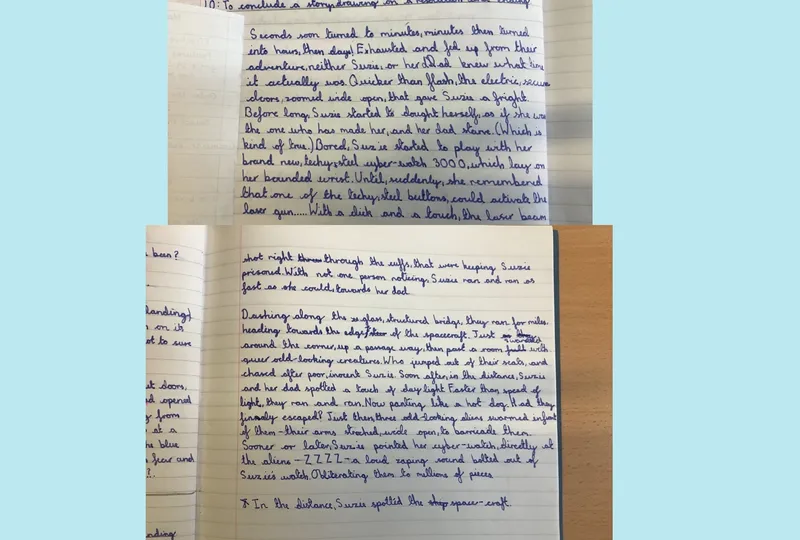 LO: To conclude a story drawing on a resolution and ending
Seconds soon turned to minutes, minutes then turned
into hours, then days! Exhausted and fed up from their
adventure, neither Suzie, or her Dad knew what time
it actually was. Quicker than flash, the electric, secure
doors, zoomed wide open, that gave Suzie a fright.
Before long, Suzie started to dought herself, as if she was
the one who has made her, and her dad starve. (Which is
kind of true.) Bored, Suzie started to play with her
brand new, techy, steel cyber-watch 3000, which lay on
her bounded wrist. Until, suddenly, she remembered
that one of the techy, steel buttons, could activate the
laser gun..... With a click and a touch, the laser beam
shot right through the cuffs, that were keeping Suzie
prisoned. With not one person noticing, Suzie ran and ran as
fast as she could, towards her dad.
Dashing along the glass, structured bridge, they ran for miles.
heading towards the edge of the spacecraft. Just
around the corner, up a passage way, then past a room full with
queer odd-looking creatures. Who jumped out of their seats, and
chased after poor, inocent Suzie. Soon after, in the distance, Suzie
and her dad spotted a touch of day light. Faster than speed of
light, they ran and ran. Now panting like a hot dog. Had they
finaly escaped? Just then, three odd-looking aliens swarmed infront
of them - their arms streched, wide open, to barricade them.
Sooner or later, Suzie pointed her cyber-watch, directly at
the aliens - ZZZZ - a loud zaping sound bolted out of
Suzie's watch. Obliterating them to millions of pieces.
* In the distance, Suzie spotted the space-craft.
been?
landing)
on it
ot to sure
doors,
d opened
y from
at a
he blue
fear and
?
nding